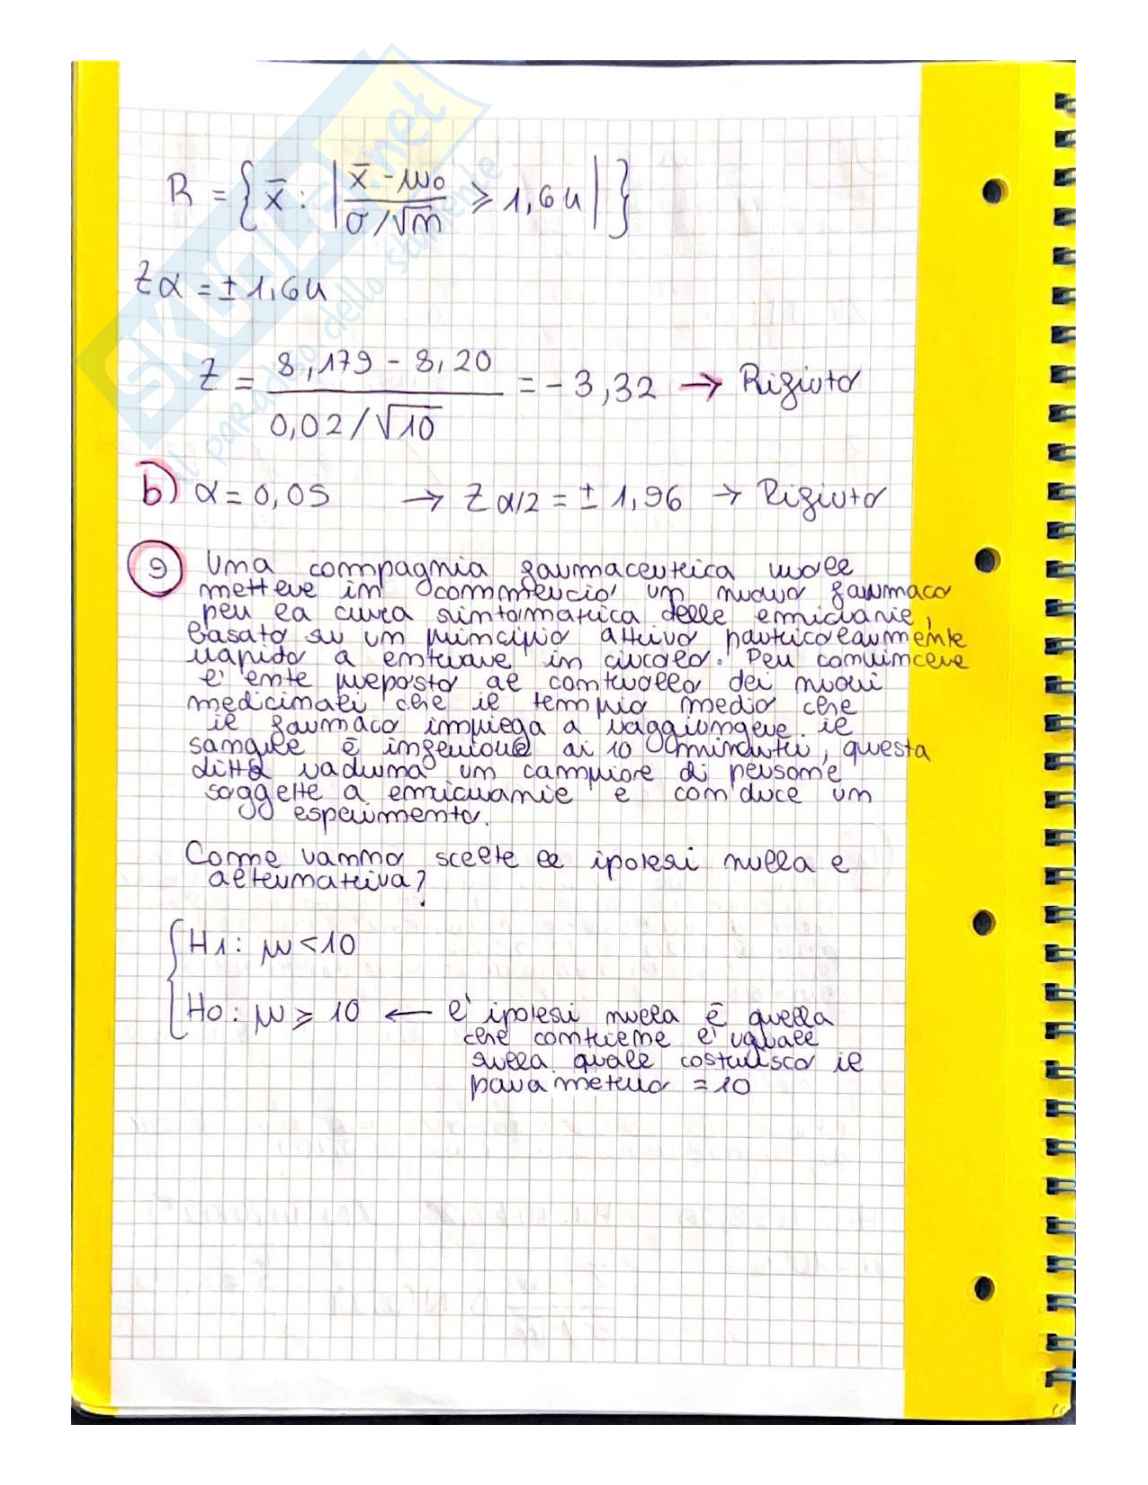 R = { x̄ : | x̄ - μ0 / σ/√n ≥ 1,64 | }
Zα = ± 1,64
Z = 8,179 - 8,20 / 0,02/√10 = - 3,32 → Rifiuto
b) α = 0,05 → Z α/2 = ± 1,96 → Rifiuto
9 Una compagnia farmaceutica vuole
mettere in commercio un nuovo farmaco
per la cura sintomatica delle emicranie,
basato su un principio attivo particolarmente
rapido a entrare in circolo. Per convincere
l'ente preposto al controllo dei nuovi
medicinali che il tempo medio che
il farmaco impiega a raggiungere il
sangue è inferiore ai 10 minuti, questa
ditta raduna un campione di persone
soggette a emicranie e conduce un
esperimento.
Come vanno scelte le ipotesi nulla e
alternativa?
H1: μ < 10
H0: μ ≥ 10 ← l'ipotesi nulla è quella
che contiene l'uguale
sulla quale costruisco il
parametro = 10
SKUOLA.net
il paradiso dello studente